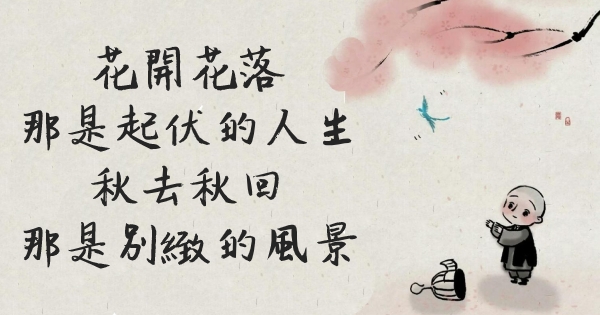 花開花落
那是起伏的人生
秋去秋回
那是別緻的風景